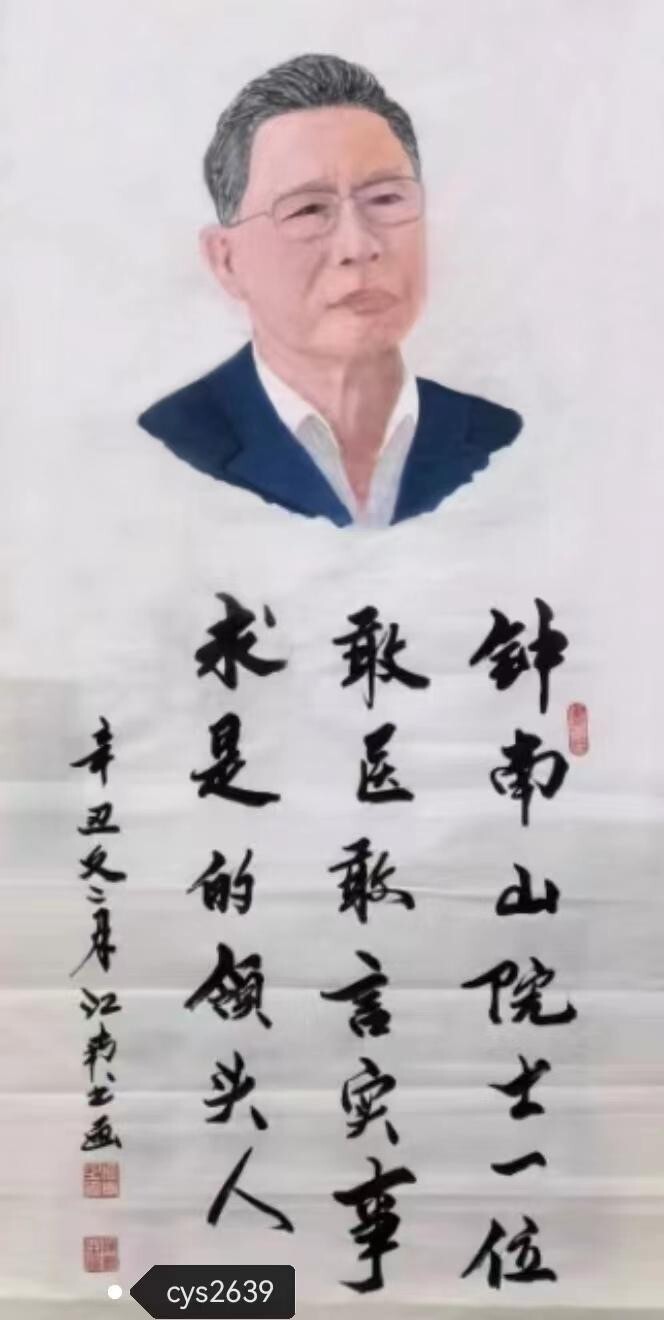 钟南山院士一位
敢医敢言实事
求是的领头人
辛丑夂二月江韩书画
cys2639